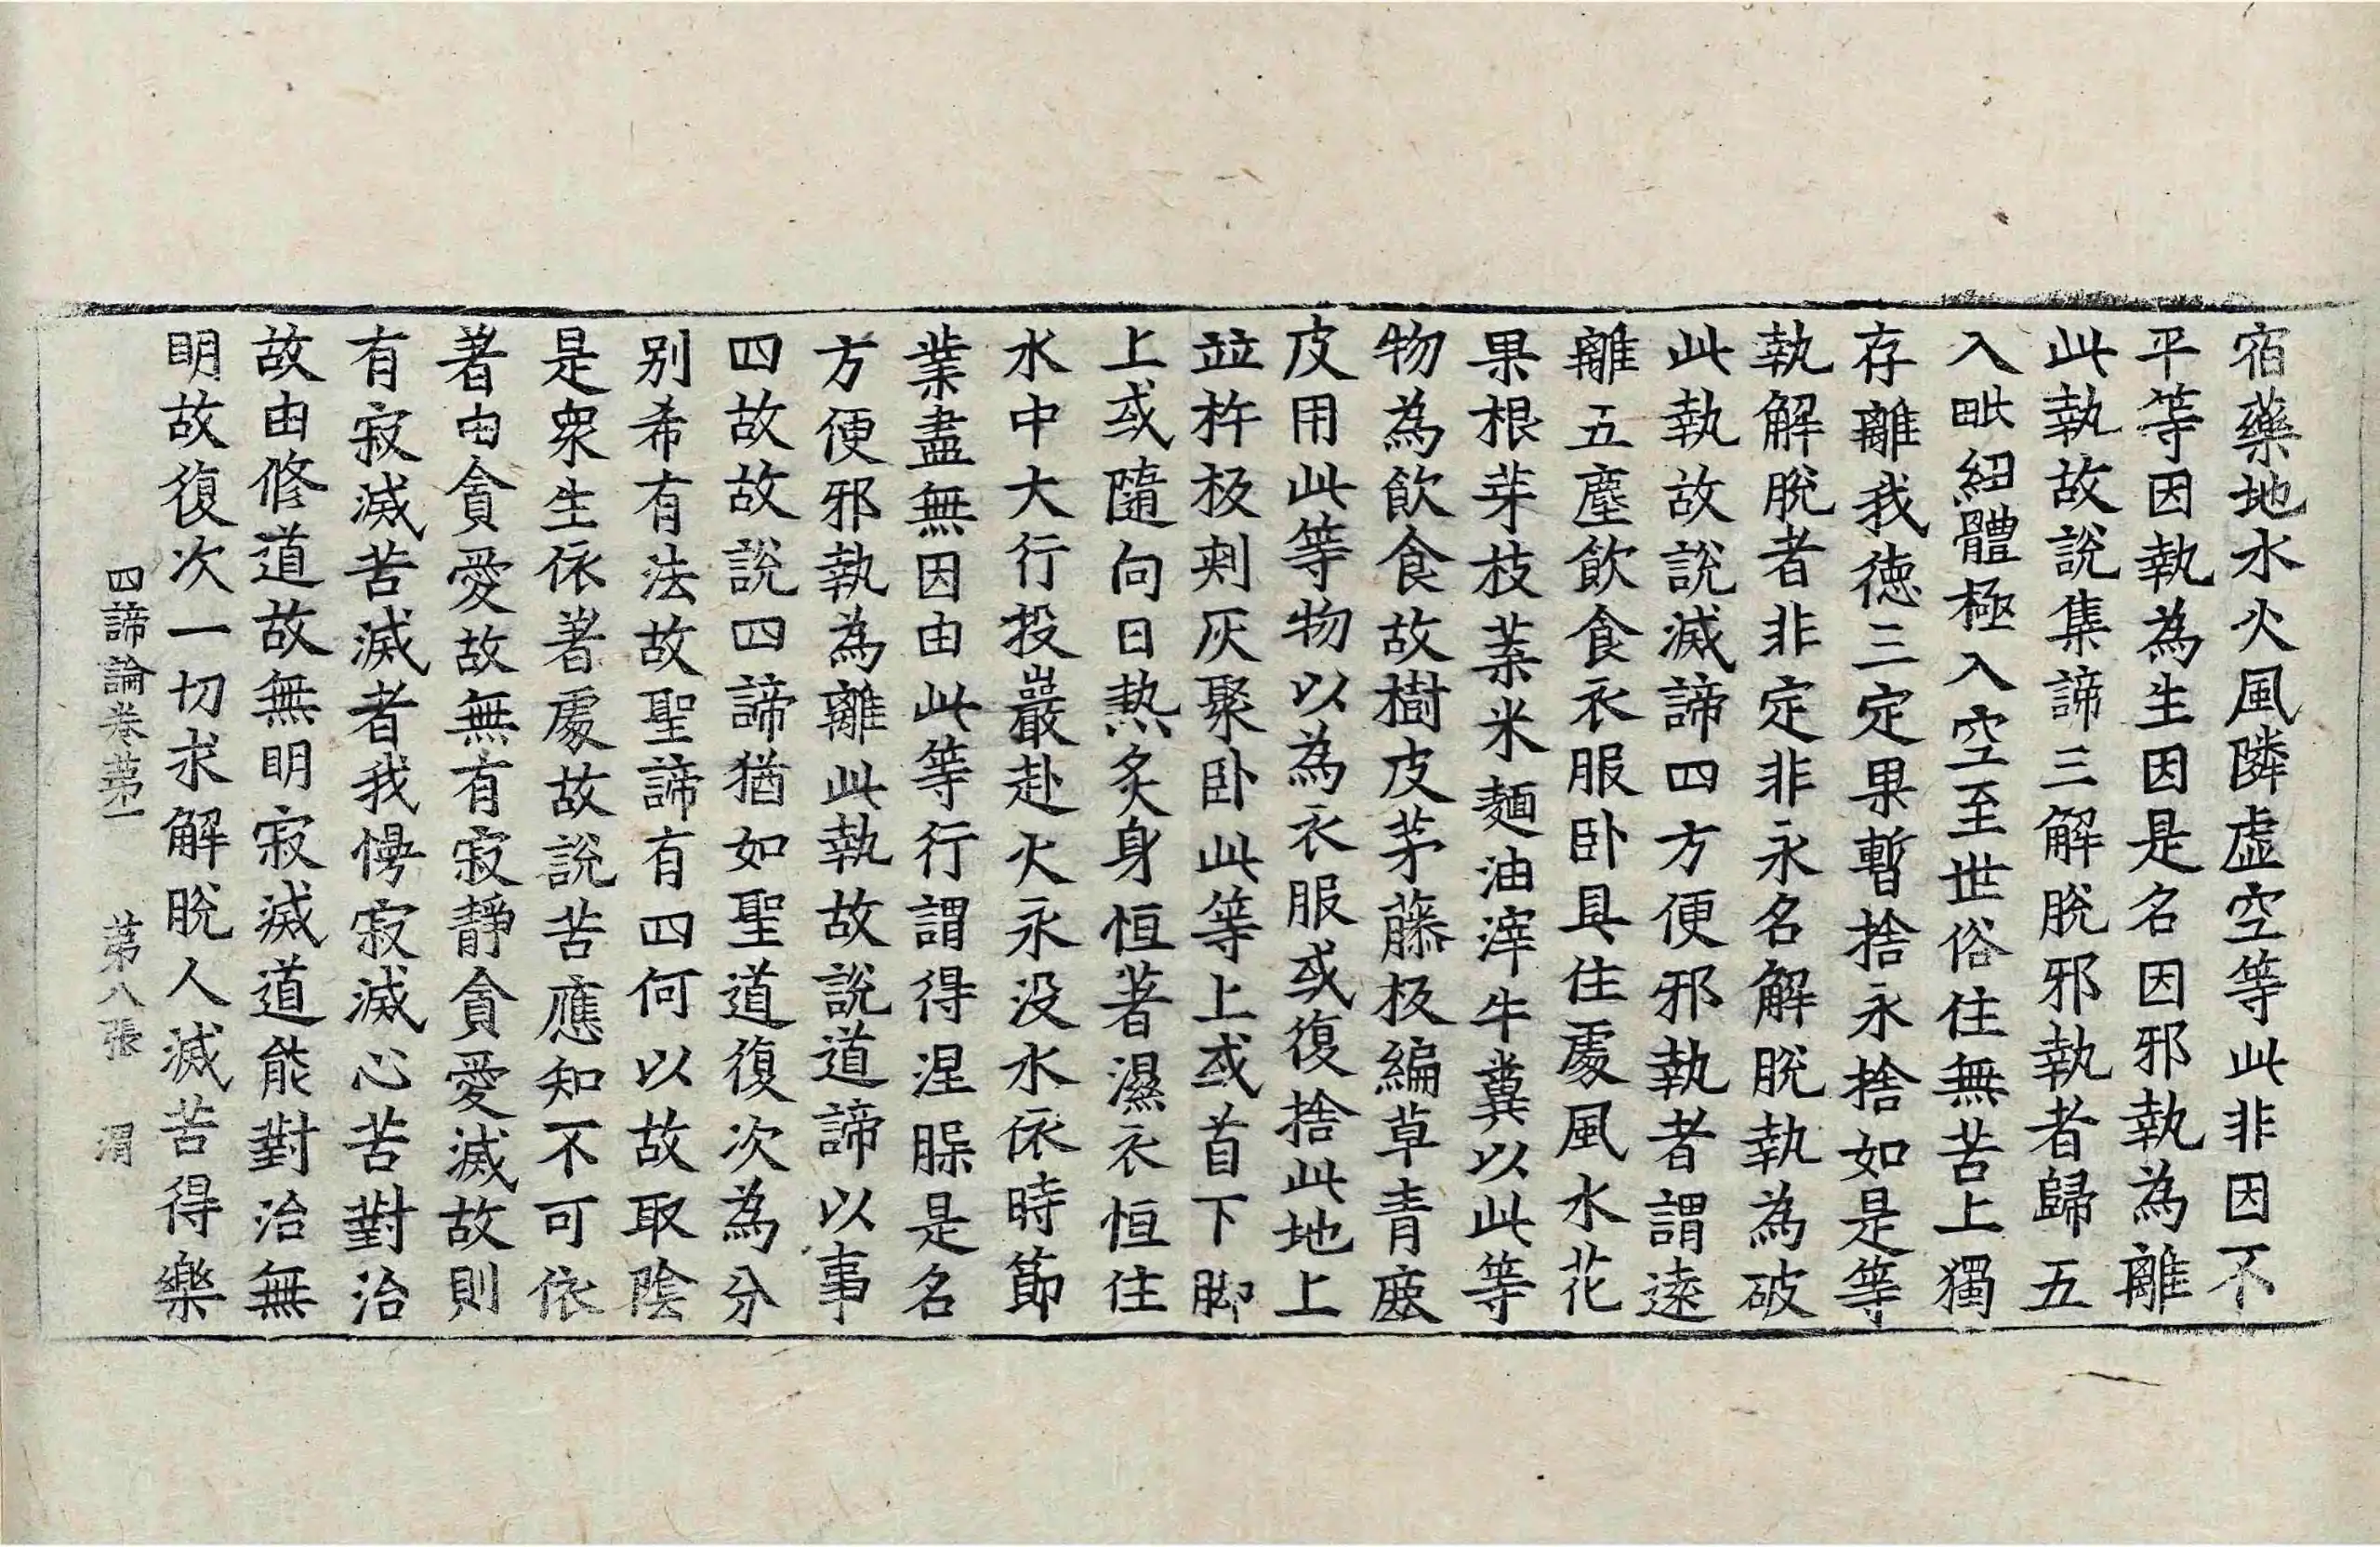 宿藥地水火風隣虛空等此非因不
平等因執為生因是名因邪執為離
此執故說集諦三解脫邪執者歸五
入毗紐體極入空至世俗住無苦上獨
存離我德三定果暫捨永捨如是等
執解脫者非定非永名解脫執為破
此執故說滅諦四方便邪執者謂遠
離五塵飲食衣服卧具住處風水花
果根芽枝葉米麵油滓牛糞以此等
物為飲食故樹皮茅藤板編草青鹿
皮用此等物以為衣服或復捨此地上
並杵板刺灰聚卧此等上或首下脚
上或隨向日熱炙身恒著濕衣恒住
水中大行投巖赴火永没水依時節
業盡無因由此等行謂得涅槃是名
方便邪執為離此執故說道諦以事
四故故說四諦猶如聖道復次為分
別希有法故聖諦有四何以故取陰
是衆生依著處故說苦應知不可依
著由貪愛故無有寂靜貪愛滅故則
有寂滅苦滅者我慢寂滅心苦對治
故由修道故無明寂滅道能對治無
明故復次一切求解脫人滅苦得樂
四諦論卷第一　第八張　渭